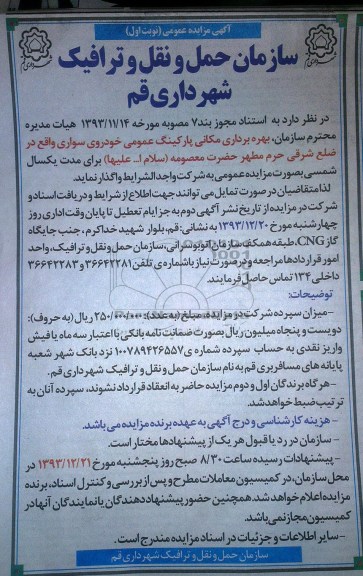 آگهی مزایده عمومی (نوبت اول)
سازمان حمل و نقل و ترافیک
شهرداری قم
در نظر دارد به استناد مجوز بند۷ مصوبه مورخه ۱۳۹۳/۱۱/۱۴ هیات مدیره
محترم سازمان، بهره برداری مکانی پارکینگ عمومی خودروی سواری واقع در
ضلع شرقی حرم مطهر حضرت معصومه (سلام ا... علیها) برای مدت یکسال
شمسی بصورت مزایده عمومی به شرکت واجدالشرایط واگذار نماید.
لذا متقاضیان در صورت تمایل می توانند جهت اطلاع از شرایط و دریافت اسناد و
شرکت در مزایده از تاریخ نشر آگهی دوم به جز ایام تعطیل تا پایان وقت اداری روز
چهارشنبه مورخ ۱۳۹۳/۱۲/۲۰ به نشانی: قم، بلوار شهید خداکرم، جنب جایگاه
گاز CNG، طبقه همکف سازمان اتوبوسرانی، سازمان حمل و نقل و ترافیک، واحد
امور قراردادها مراجعه و در صورت نیاز با شماره ی تلفن ۳۶۶۴۲۲۸۱ و ۳۶۶۴۲۲۸۳
داخلی ۱۳۴ تماس حاصل فرمایند.
توضیحات:
-میزان سپرده شرکت در مزایده، مبلغ (به عدد): ۲۵۰/۰۰۰/۰۰۰ ریال (به حروف):
دویست و پنجاه میلیون ریال بصورت ضمانت نامه بانکی با اعتبار سه ماه یا فیش
واریز نقدی به حساب سپرده شماره ی ۱۰۰۷۸۹۴۲۶۵۵۷ نزد بانک شهر شعبه
پایانه های مسافربری قم به نام سازمان حمل و نقل و ترافیک شهرداری قم.
- هرگاه برندگان اول و دوم مزایده حاضر به انعقاد قرارداد نشوند، سپرده آنان به
ترتیب ضبط خواهد شد.
- هزینه کارشناسی و درج آگهی به عهده برنده مزایده می باشد.
- سازمان در رد یا قبول هر یک از پیشنهادها مختار است.
- پیشنهادات رسیده ساعت ۸/۳۰ صبح روز پنجشنبه مورخ ۱۳۹۳/۱۲/۲۱ در
محل سازمان، در کمیسیون معاملات مطرح و پس از بررسی و کنترل اسناد، برنده
مزایده اعلام خواهد شد. همچنین حضور پیشنهاد دهندگان یا نمایندگان آنها در
کمیسیون مجاز نمی باشد.
-سایر اطلاعات و جزئیات در اسناد مزایده مندرج است.
سازمان حمل و نقل و ترافیک شهرداری قم